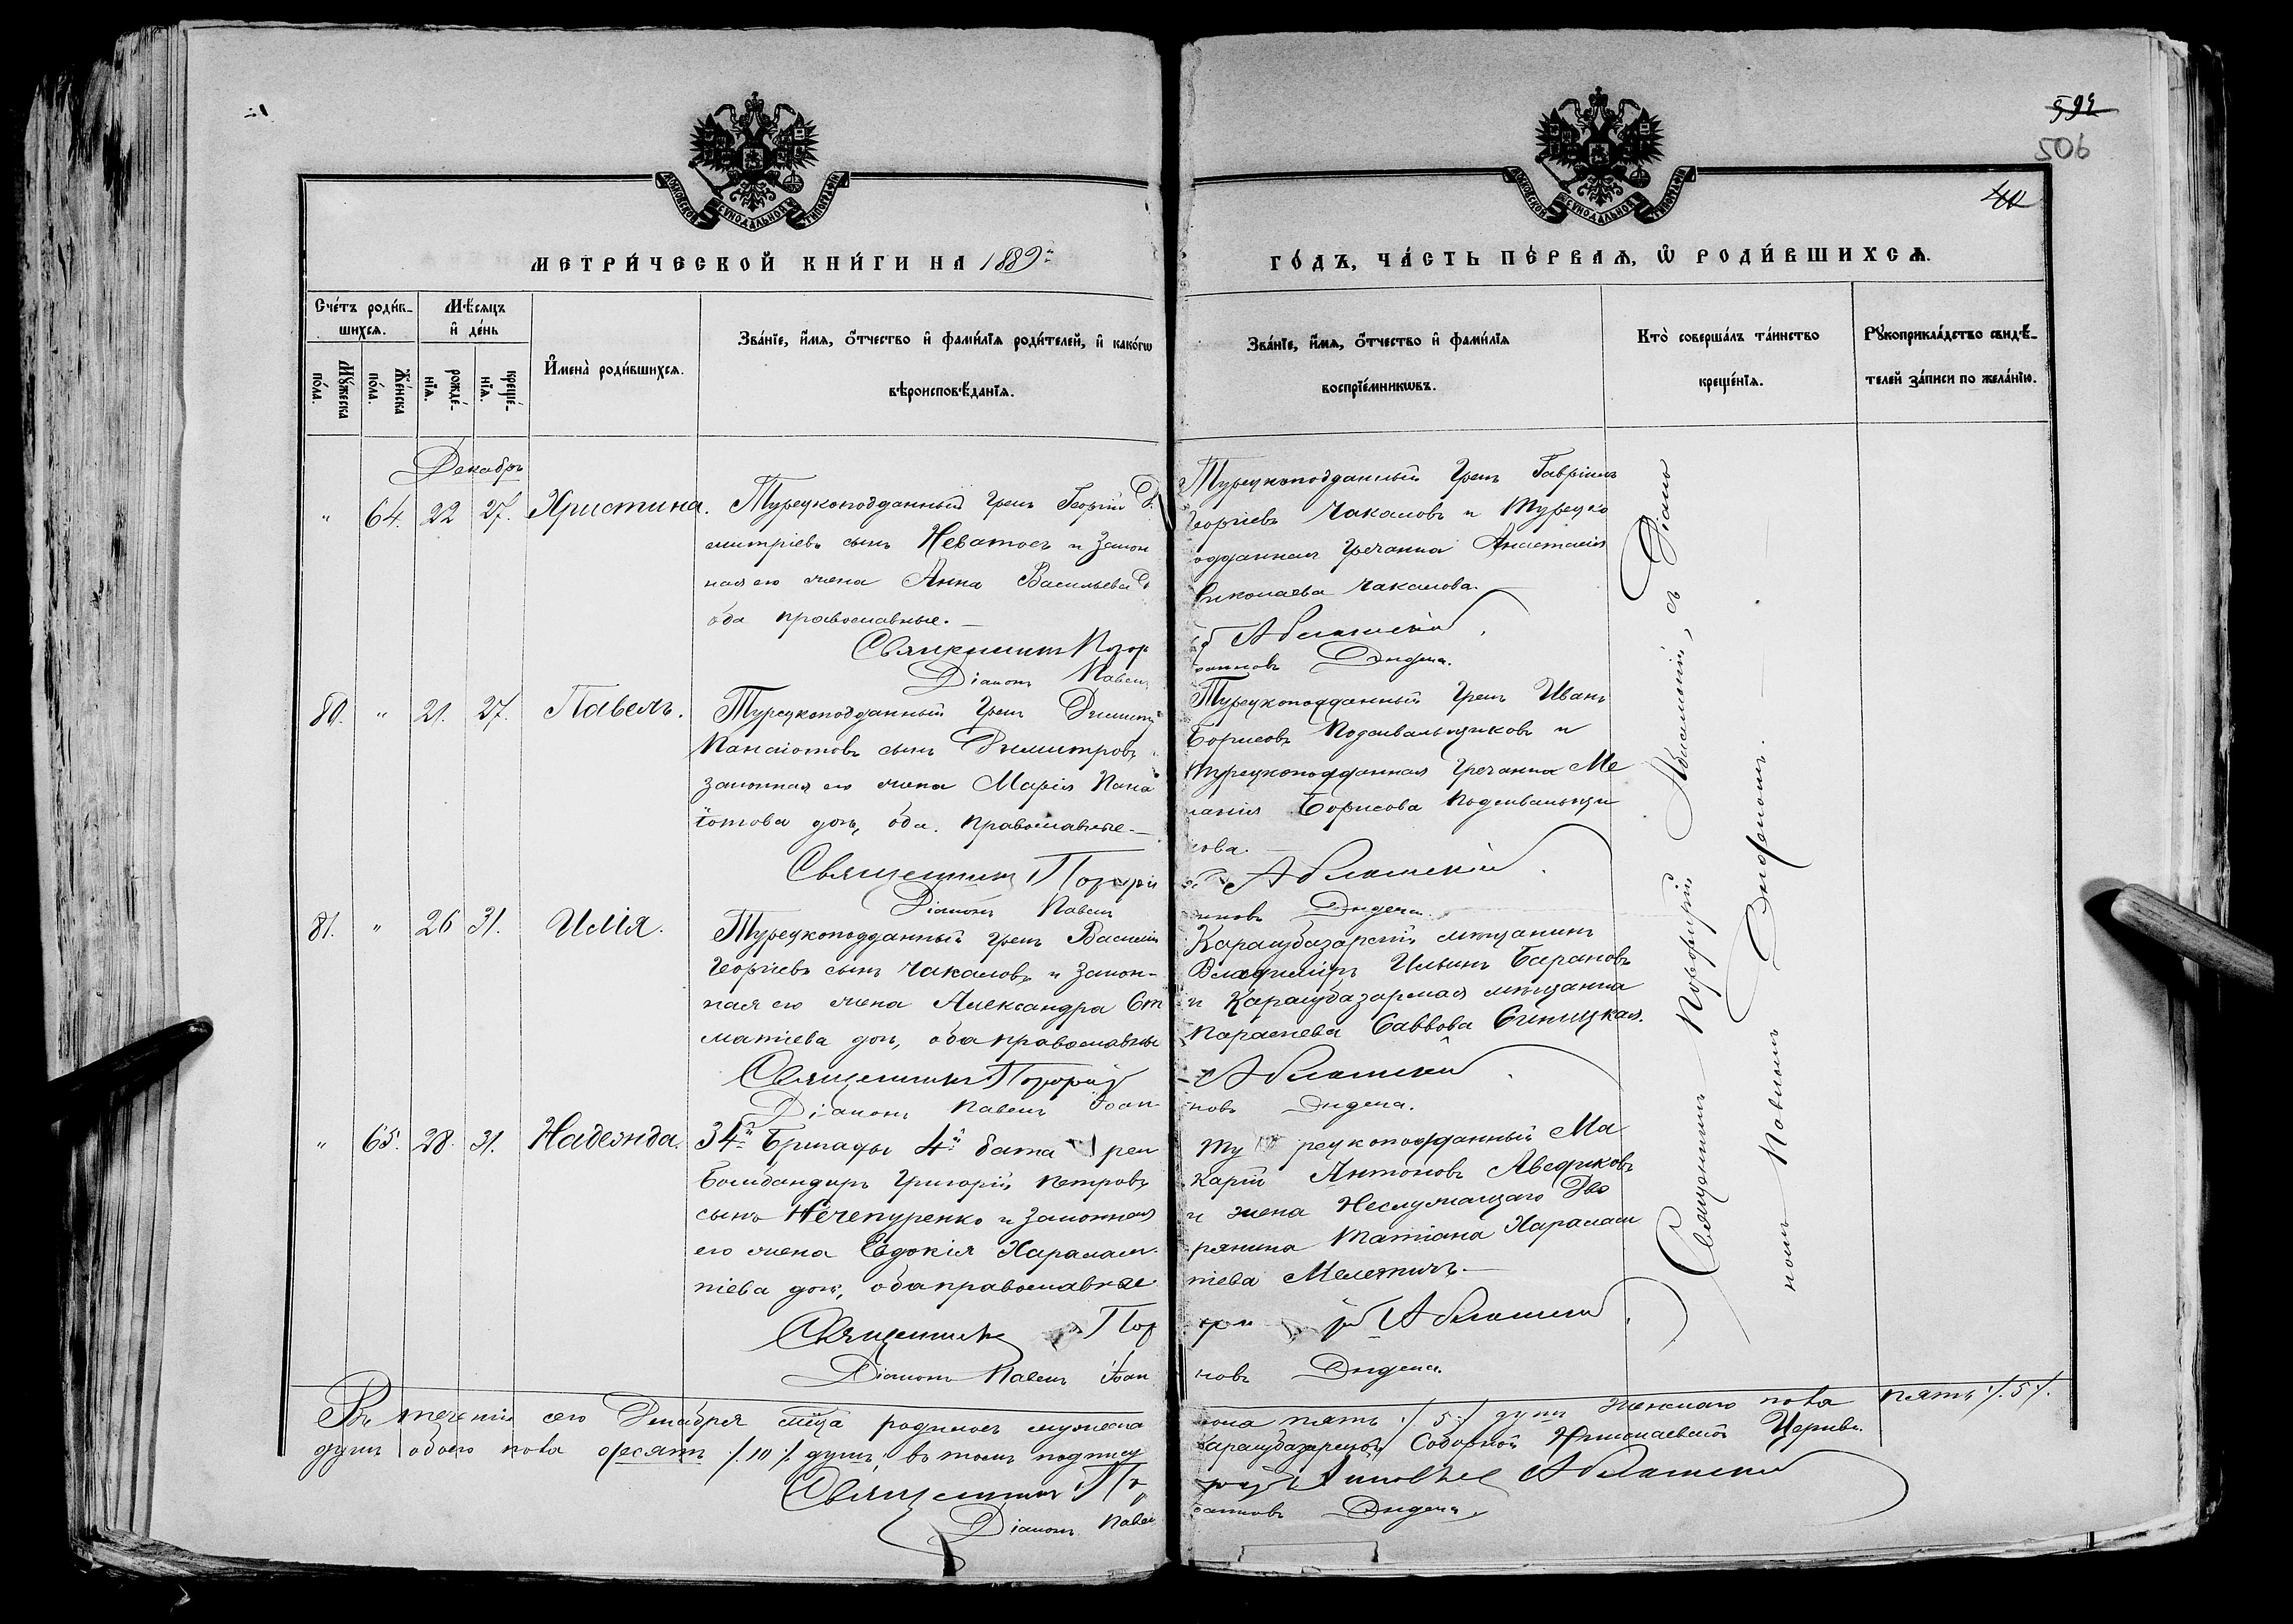 592
506
МОСКОВСКОЙ СѴНОДАЛЬНОЙ ТИПОГРАФІИ
МОСКОВСКОЙ СѴНОДАЛЬНОЙ ТИПОГРАФІИ
МЕТРИ́ЧЕСКОЙ КНИ́ГИ НА 1889й
ГО́ДЪ, ЧА́СТЬ ПЕ́РВАѦ, Ѽ РОДИ́ВШИХСѦ.
Сче́тъ роди́в-
шихсѧ.
Мꙋжеска
по́ла.
Же́нска
по́ла.
Мѣ́сѧцъ
и҆ де́нь
рожде́-
нїѧ.
креще́-
нїѧ.
И҆мена̀ роди́вшихсѧ.
Зва́нїе, и҆́мѧ, ѻ҆́тчество и҆ фами́лїѧ роди́телей, и҆ како́гѡ
вѣроисповѣ́данїѧ.
Зва́нїе, и҆́мѧ, ѻ҆́тчество и҆ фами́лїѧ
воспрїе́мникѡвъ.
Кто̀ соверша́лъ та́инство
креще́нїѧ.
Рꙋкоприкла́дство свидѣ́-
телей за́писи по жела́нїю.
Декабрь
" 64. 22 27. Христина.
Турецкоподданный Грекъ Георгій Ди
митріевъ сынъ Неватосъ и закон
ная его жена Анна Васильева д
оба православные.
Священникъ Порф
Діаконъ Павелъ
Турецкоподданный Грекъ Гавріилъ
Георгіевъ Чакаловъ и Турецко
одданная Гречанка Анастасія
Николаева Чакалова.
Абламскій
анновъ Дидега.
80. " 21. 27. Павелъ.
Турецкоподданный Грекъ Димитр
Панаіотовъ сынъ Димитровъ
законная его жена Марія Пана
іотова дочь, оба православные
Священникъ Порфирій
Діаконъ Павелъ
Турецкоподданный Грекъ Иванъ
Борисовъ Подсивальщиковъ и
турецкоподданная Гречанка Ме
ланія Борисова Подсивальщи
кова.
Абламскій
нновъ Дидега.
81. " 26 31. Илія.
Турецкоподданный Грекъ Василій
Георгіевъ сынъ Чакаловъ и закон-
ная его жена Александра Ст
матіева дочь, оба православные
Священникъ Порфирій
Діаконъ Павелъ Іоан-
Карасубазарскій мѣщанинъ
Владиміръ Ильинъ Барановъ
и Карасубазарская мѣщанка
Параскева Саввова Синицкая.
Абламскій
новъ Дидега.
" 65. 28. 31. Надежда.
34й Бригады 4й бата реи
Бомбандиръ Григорій Петровъ
сынъ Нечепуренко и законная
его жена Евдокія Харалам-
піева дочь, оба православные
Священникъ Пор
Діаконъ Павелъ Іоан
Ту рецкоподданный Ма
карій Антоновъ Аведиковъ
и жена Неслужащаго Дво
рянина Татіана Харалам
піева
Абламскій
новъ Дидега.
Священникъ Порфирій Абламскій, съ Діако
номъ Павломъ Дидегою.
Въ теченіи сего Декабря мѣсяца родилось мужеска
пола пять /. 5 ./ душъ женскаго пола пять /. 5 /.
душъ обоего пола десять /. 10 /. душъ, въ томъ подпису
Карасубазарской Соборной Николаевской Церкви.
Священникъ Абламскій
Діаконъ Павел анновъ Дидега